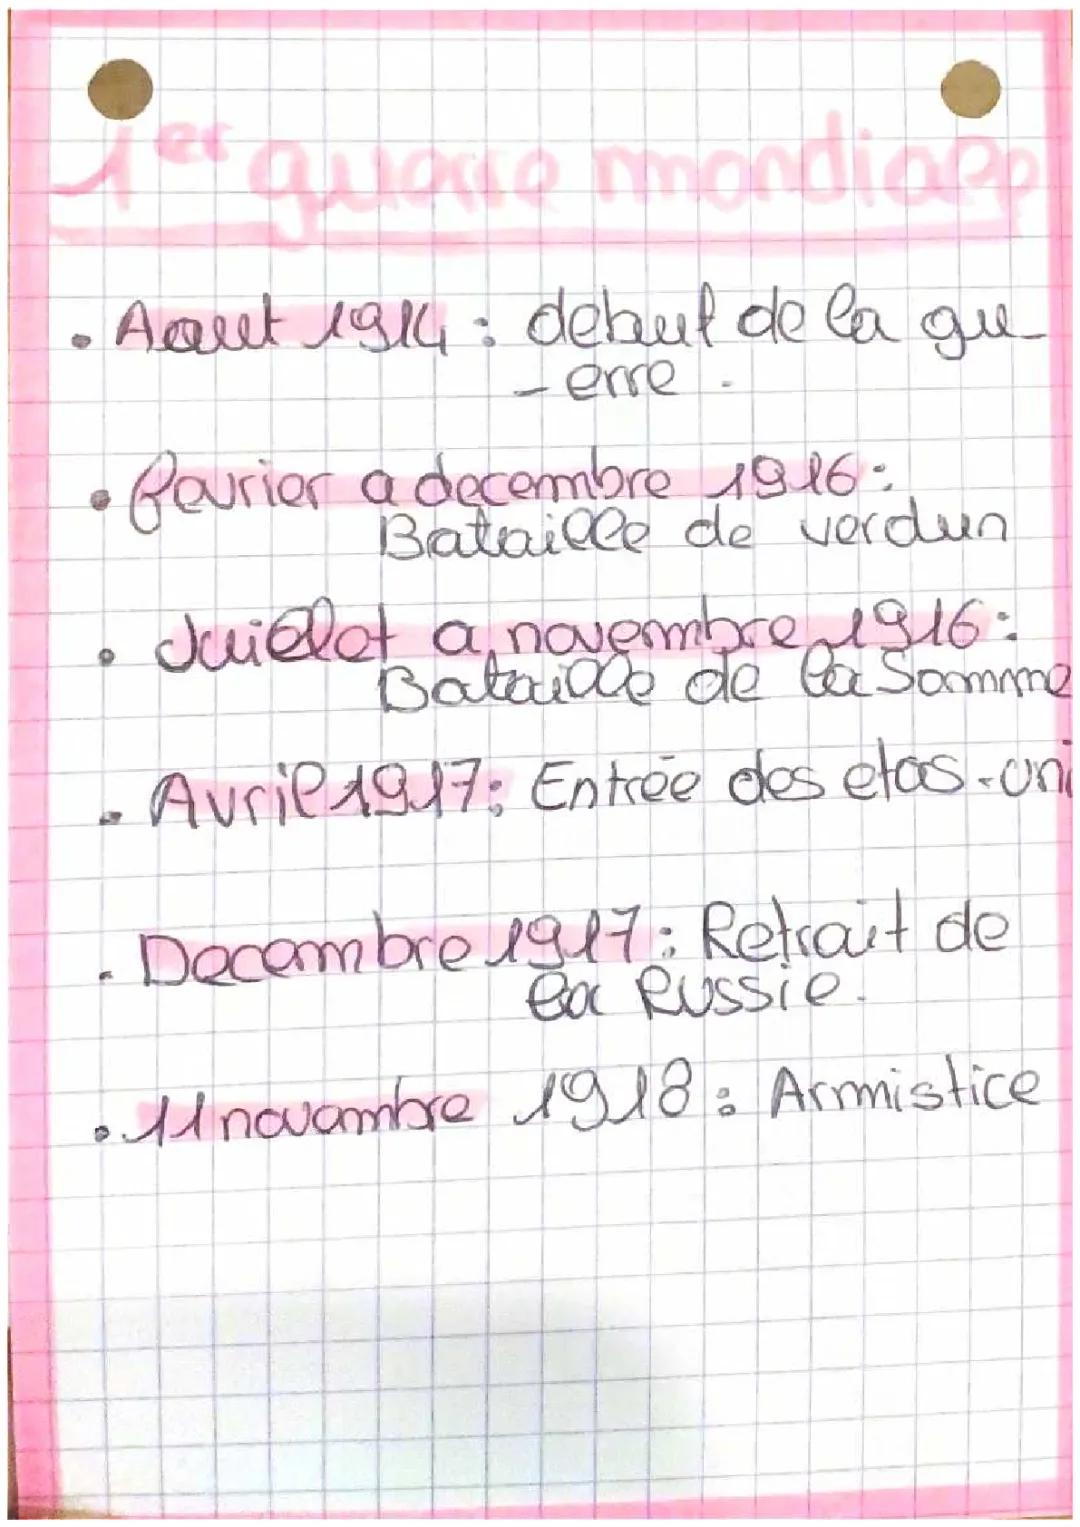 1er guerre mondiale
• Aout 1914 : debut de la gu
- erre .
• fevrier a decembre 1916 :
Bataille de verdun
• Juillet a novembre 1916 :
Bataille de la Somme
• Avril 1917 : Entrée des etas-uni
• Decembre 1917 : Retrait de
la Russie.
• 11 novembre 1918 : Armistice